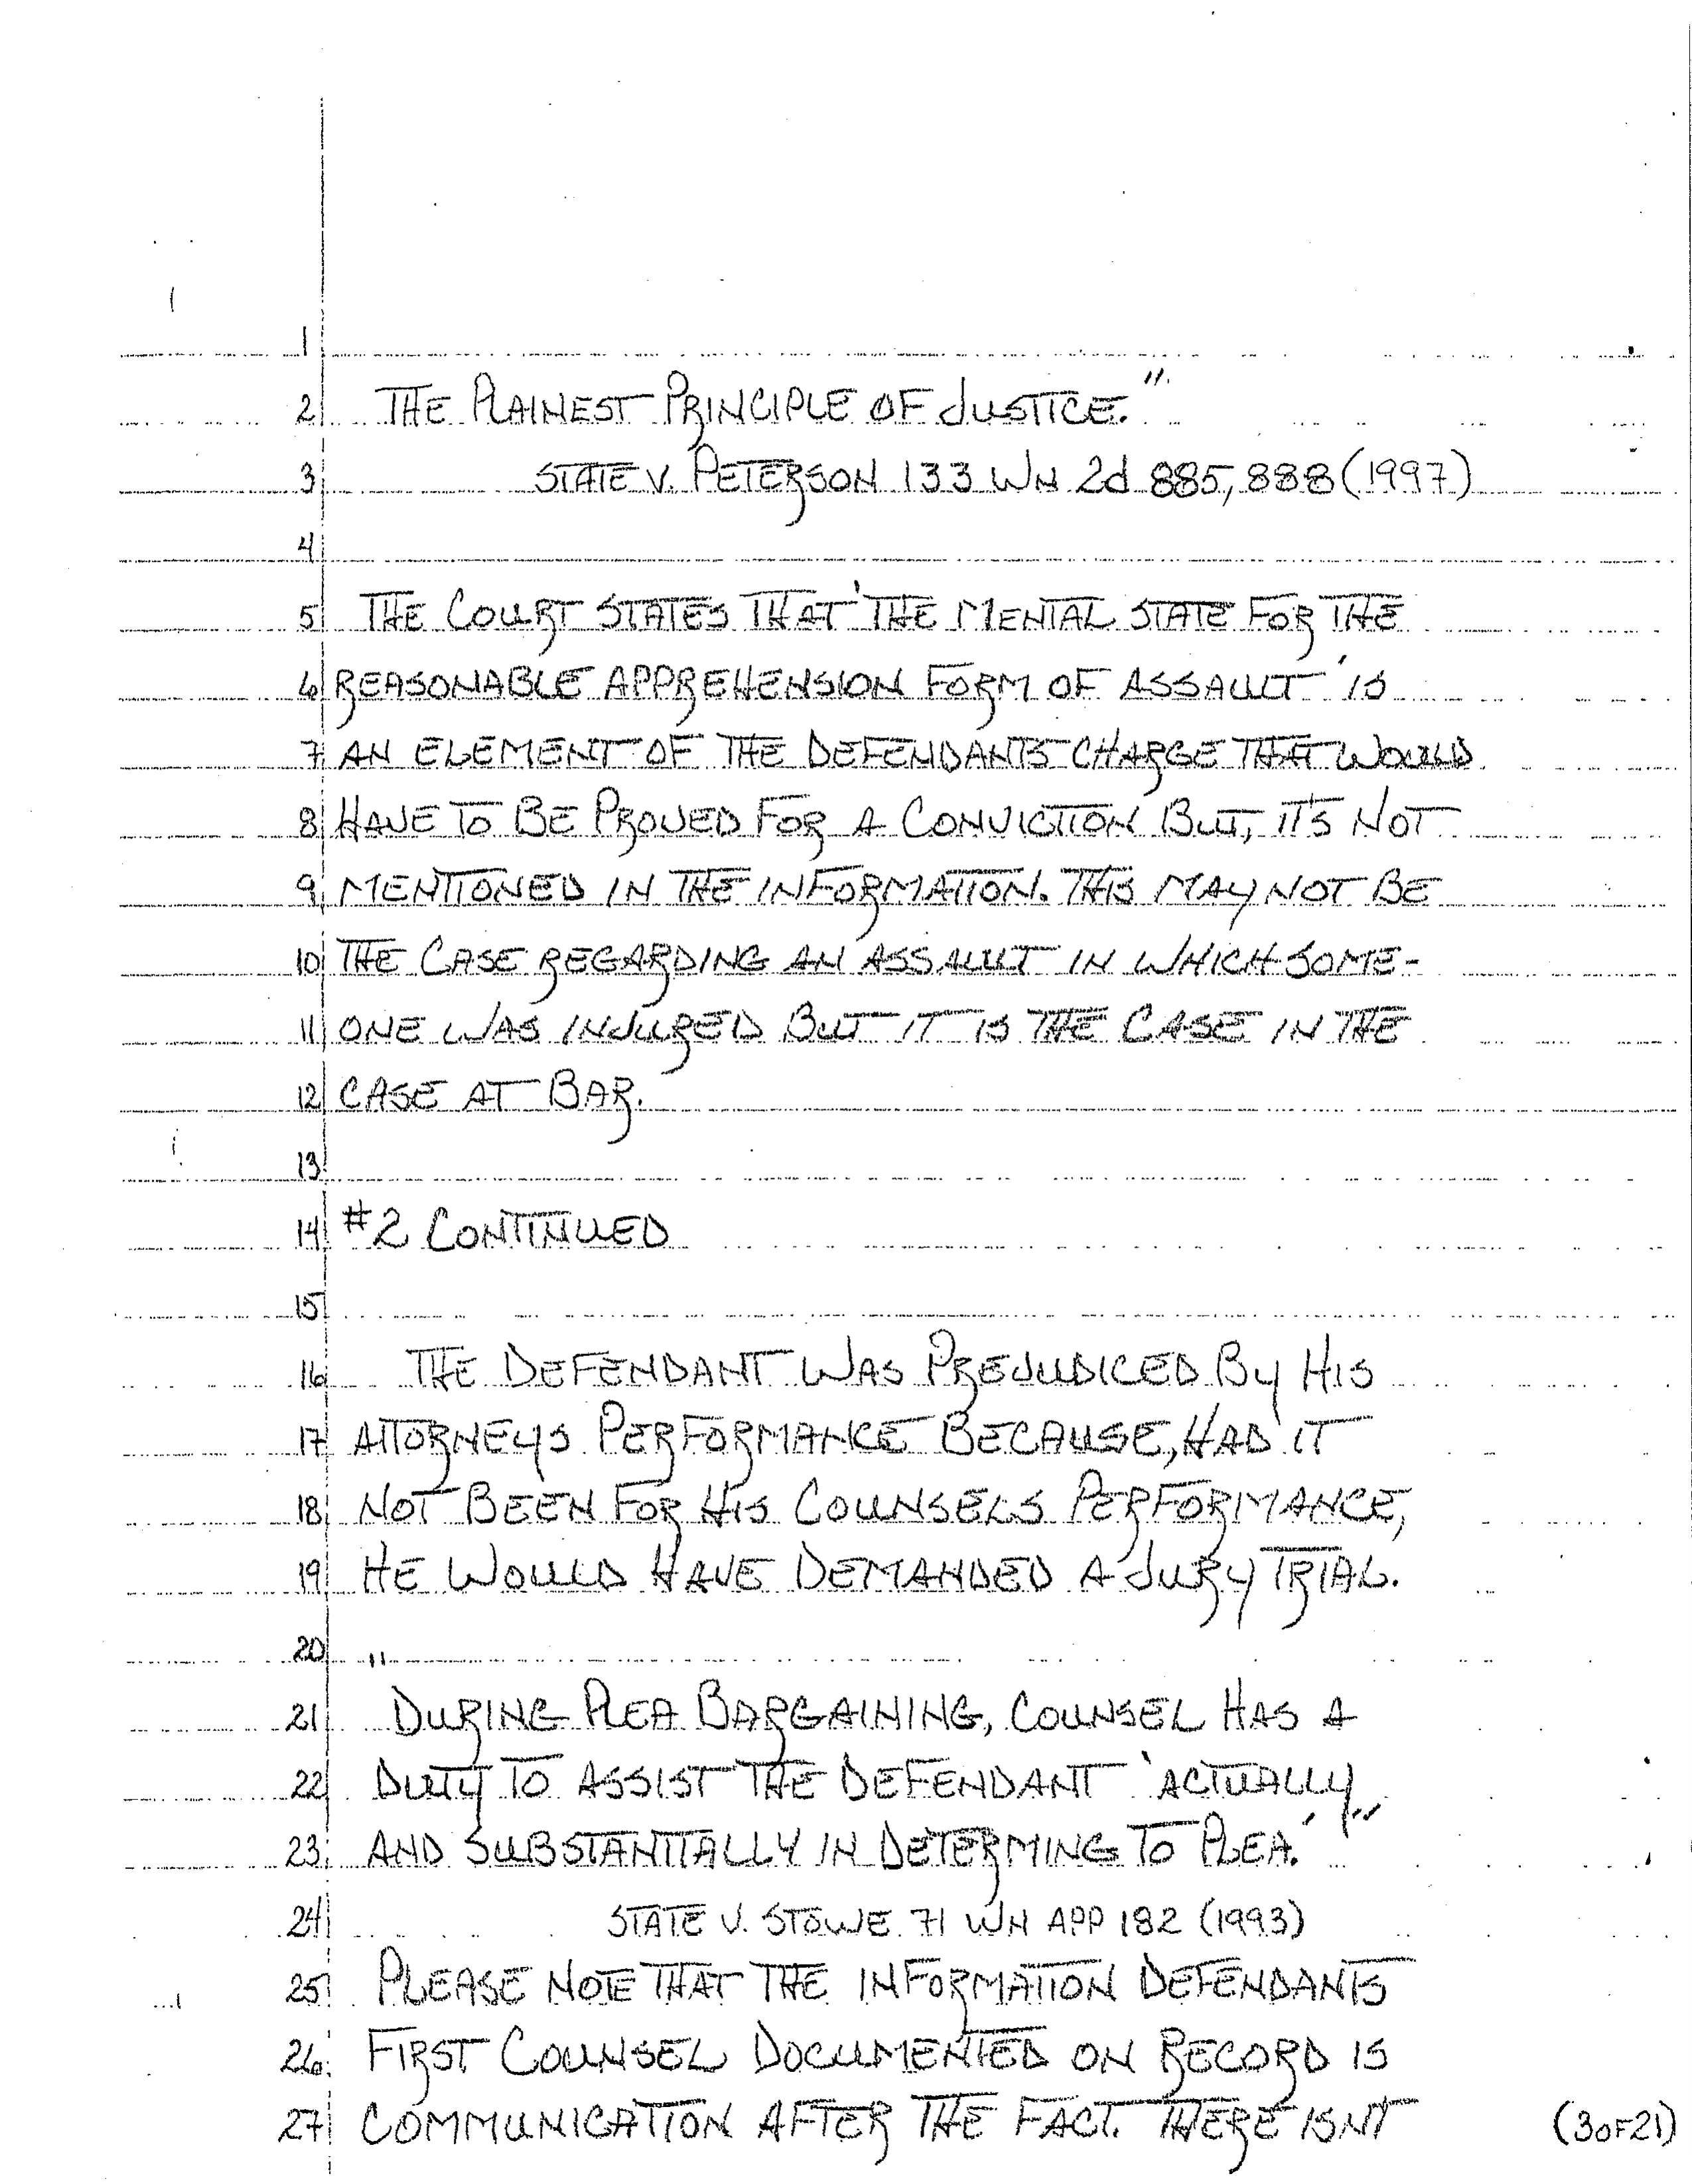 1
2 THE PLAINEST PRINCIPLE OF JUSTICE."
3 STATE V. PETERSON 133 WN 2d 885, 888 (1997)
4
5 THE COURT STATES THAT 'THE MENTAL STATE FOR THE
6 REASONABLE APPREHENSION FORM OF ASSAULT' IS
7 AN ELEMENT OF THE DEFENDANTS CHARGE THAT WOULD
8 HAVE TO BE PROVED FOR A CONVICTION BUT, IT'S NOT
9 MENTIONED IN THE INFORMATION. THIS MAY NOT BE
10 THE CASE REGARDING AN ASSAULT IN WHICH SOME-
11 ONE WAS INJURED BUT IT IS THE CASE IN THE
12 CASE AT BAR.
13
14 #2 CONTINUED
15
16 THE DEFENDANT WAS PREJUDICED BY HIS
17 ATTORNEYS PERFORMANCE BECAUSE, HAD IT
18 NOT BEEN FOR HIS COUNSELS PERFORMANCE,
19 HE WOULD HAVE DEMANDED A JURY TRIAL.
20 "
21 DURING PLEA BARGAINING, COUNSEL HAS A
22 DUTY TO ASSIST THE DEFENDANT 'ACTUALLY
23 AND SUBSTANTIALLY IN DETERMING TO PLEA.'"
24 STATE V. STOWE 71 WN APP 182 (1993)
25 PLEASE NOTE THAT THE INFORMATION DEFENDANTS
26 FIRST COUNSEL DOCUMENTED ON RECORD IS
27 COMMUNICATION AFTER THE FACT. THERE ISNT (3 OF 21)